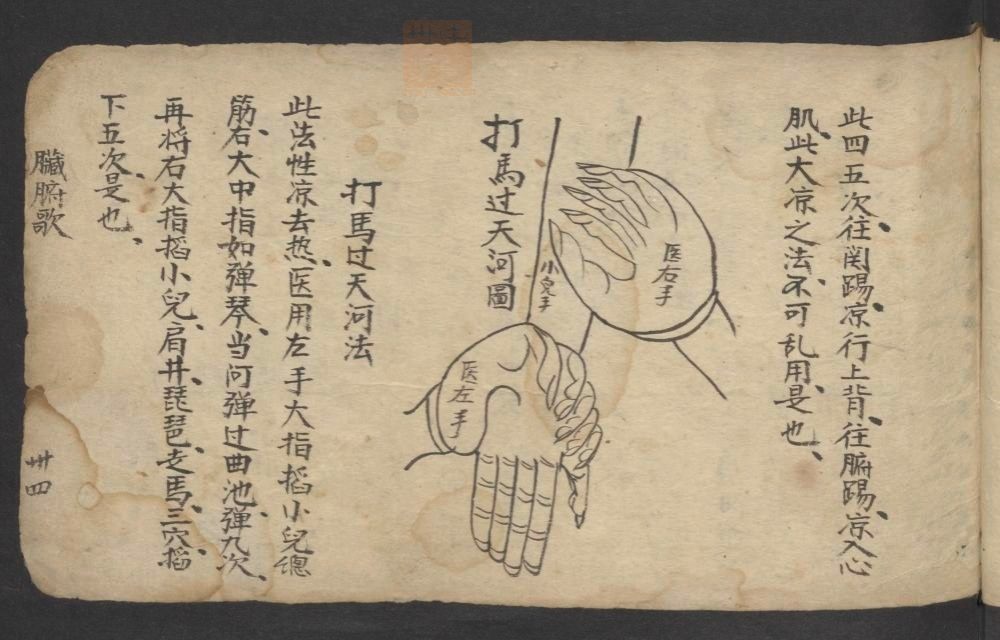 此四五次往関踢、凉行上背、往腑踢、凉入心
肌、此大凉之法、不可乱用、是也、
打馬过天河圖
医右手
小兒手
医左手
打馬过天河法
此法性凉去热、医用左手大指掐小兒总
筋、右大中指如弹琴、当问弹过曲池、弹九次、
再将右大指掐小兒、肩井琵琶、走馬、三穴掐
下五次、是也、
臟腑歌
卅四